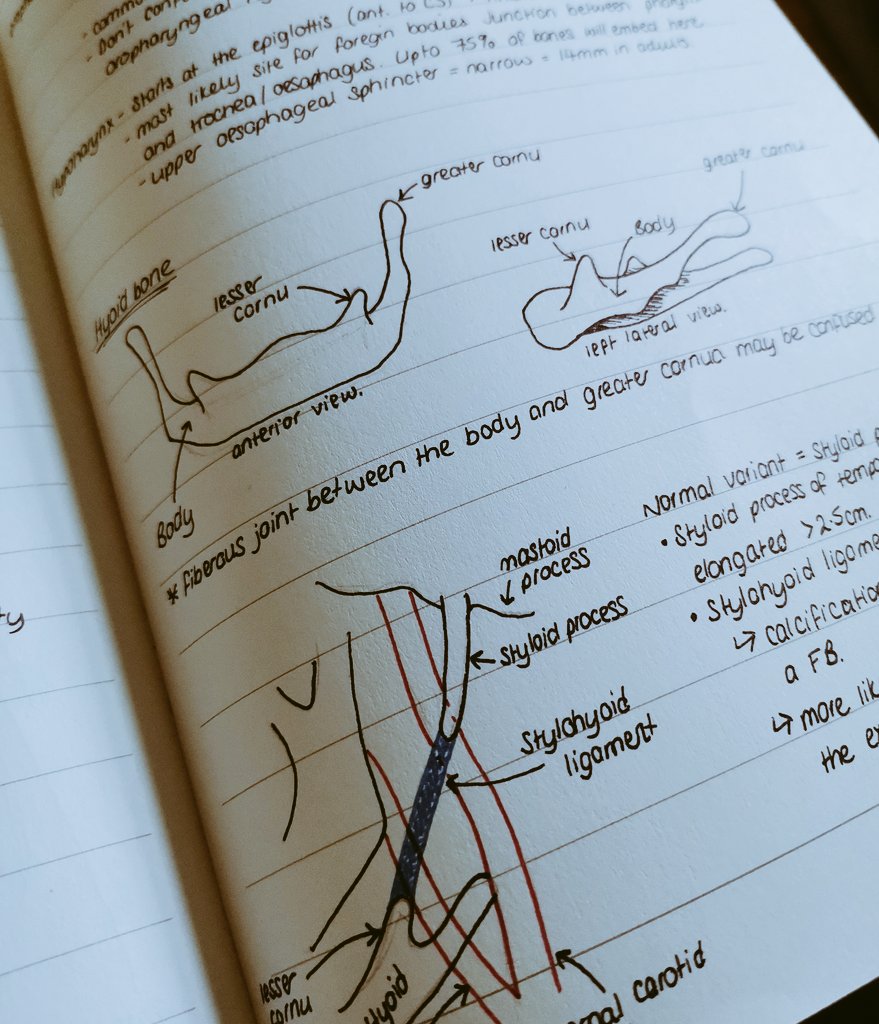 commo
- Don't con
oropharyngeal
Hypopharynx - starts at the epiglottis (ant. to C3)
- most likely site for foregin bodies Junction between
and trachea/oesophagus. Upto 75% of bones will embed here
- upper oesophageal sphincter = narrow = 14mm in adults
greater cornu
greater cornu
lesser cornu
Body
Hyoid bone
lesser
cornu
left lateral view.
anterior view.
Body
* fiberous joint between the body and greater cornua may be confused
Normal variant = Styloid
• Styloid process of tempo
elongated >2.5cm.
• Stylohyoid ligame
↳ calcification
a FB.
↳ more lik
the e
mastoid
process
styloid process
Stylohyoid
ligament
lesser
cornu
Hyoid
nal carotid
ty